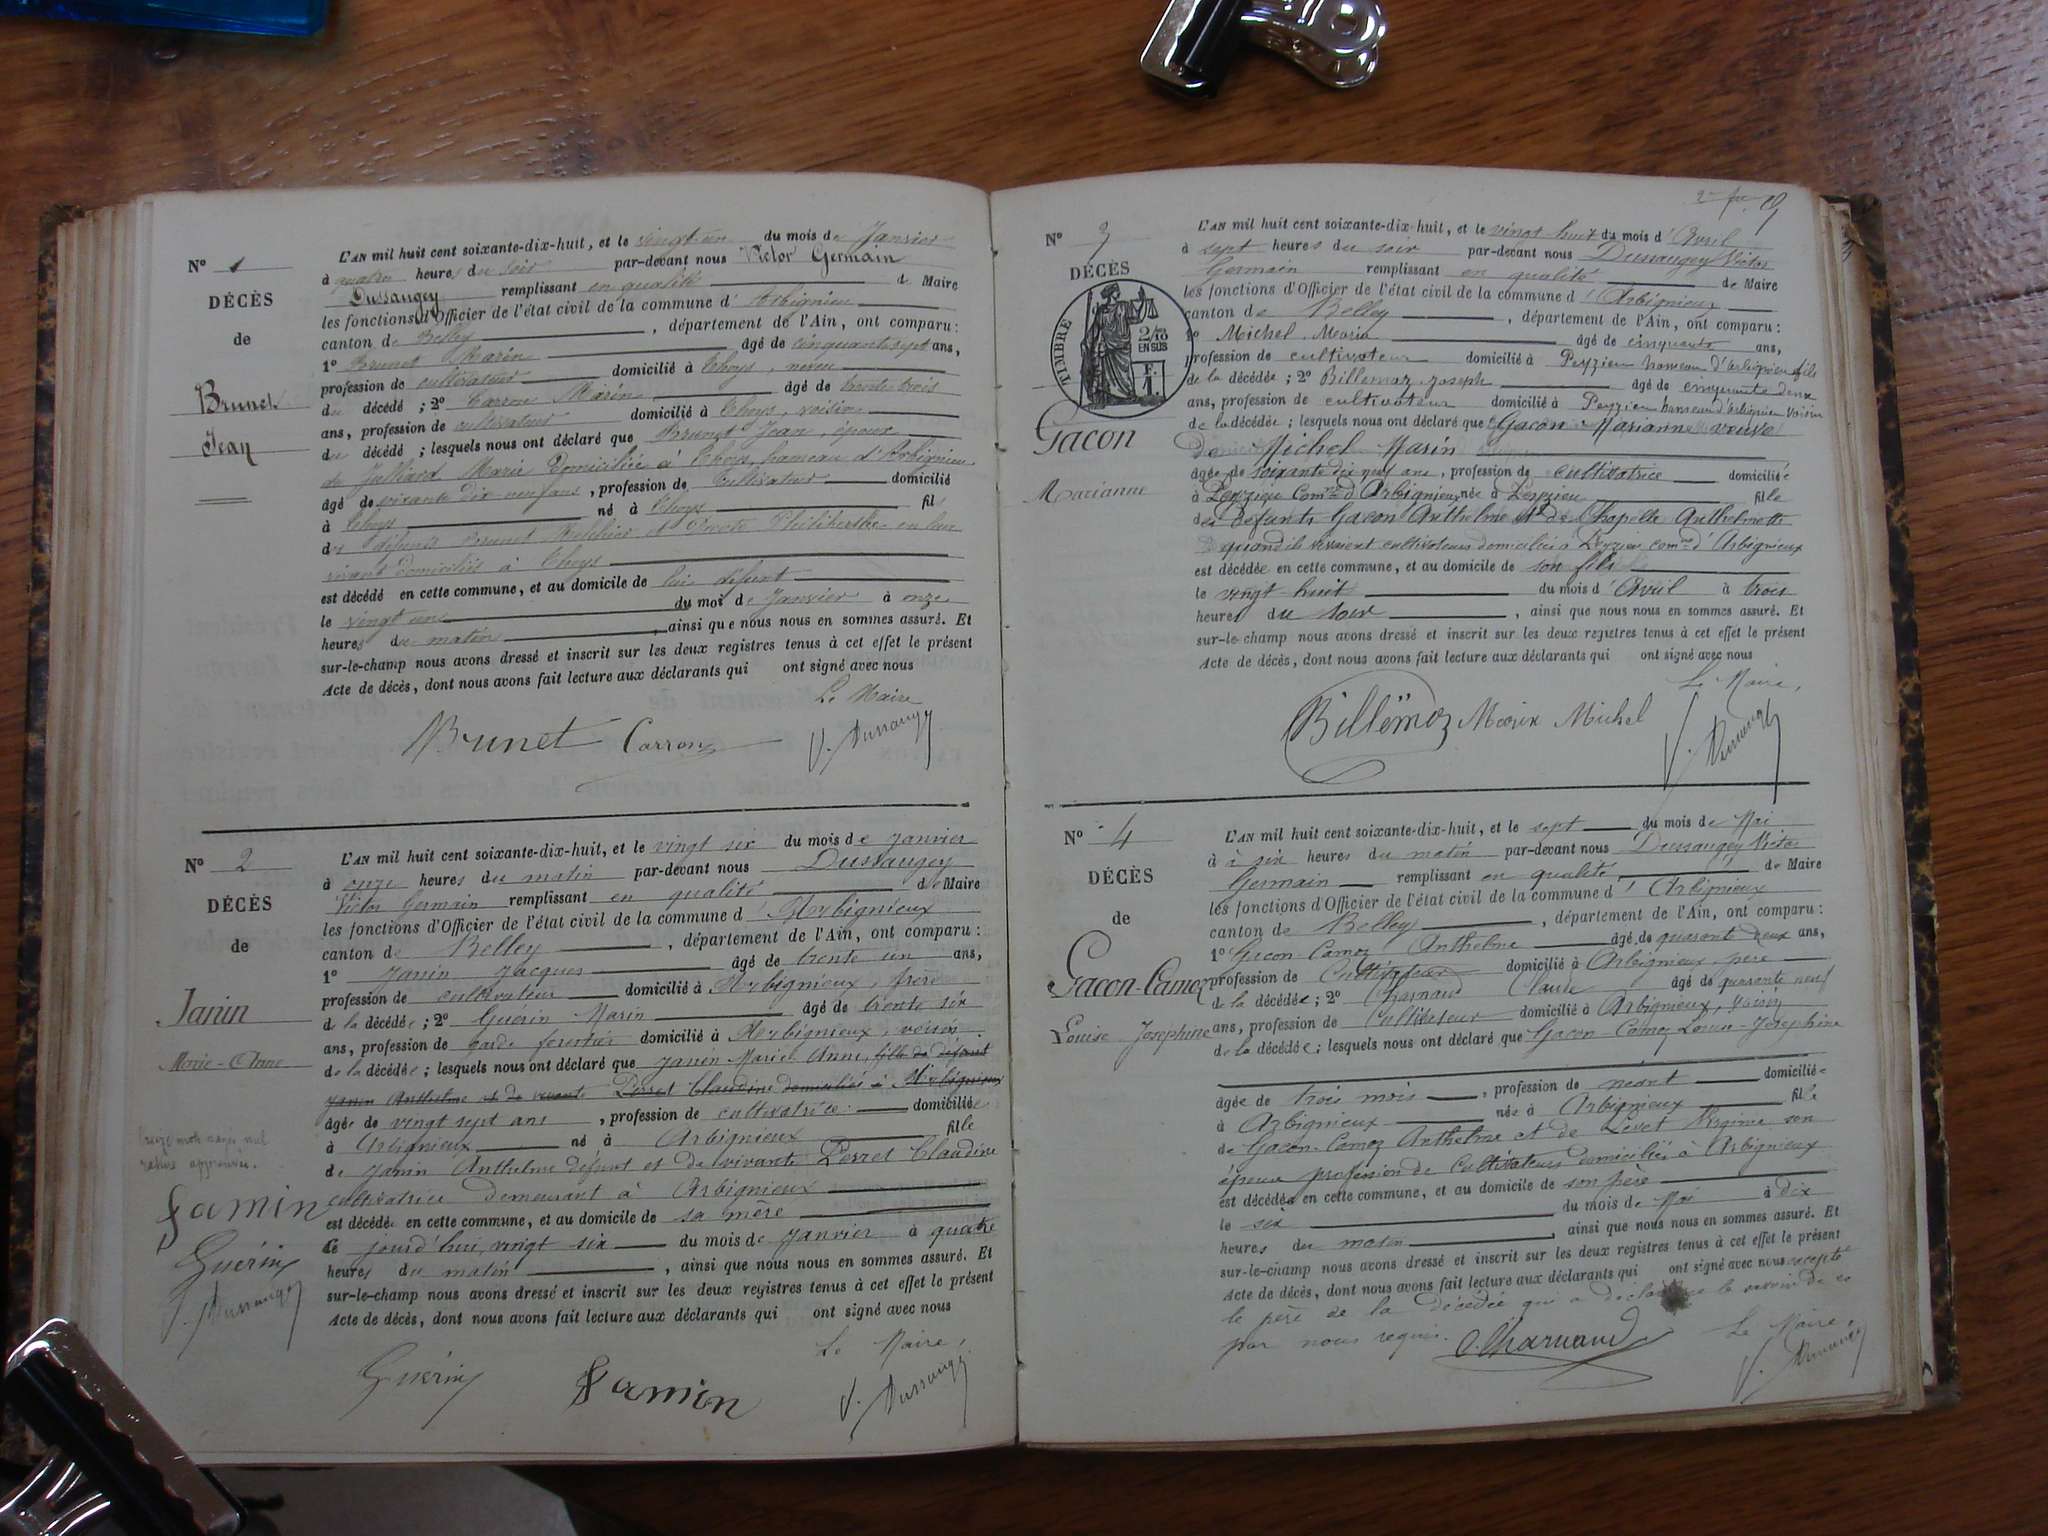 N° 1
DÉCÈS
de
Brunet
Jean
L'AN mil huit cent soixante-dix-huit, et le vingt-un du mois de Janvier
à quatre heures du soir par-devant nous Victor Germain
Dussaugey remplissant en qualité de Maire
les fonctions d'Officier de l'état civil de la commune d'Arbignieu
canton de Belley, département de l'Ain, ont comparu:
1° Brunet Marin âgé de cinquante sept ans,
profession de cultivateur domicilié à Thoys, neveu
du décédé; 2° Carron Marin âgé de trente trois
ans, profession de cultivateur domicilié à Thoys, voisin
du décédé; lesquels nous ont déclaré que Brunet Jean, époux
de Julliard Marie domiciliée à Thoys, hameau d'Arbignieu
âgé de soixante dix-neuf ans, profession de cultivateur domicilié
à Thoys né à Thoys fil
des défunts Brunet Melchior et Philiberthe en leur
vivant domiciliés à Thoys
est décédé en cette commune, et au domicile de lui défunt
le vingt une du mois de Janvier à onze
heures du matin, ainsi que nous nous en sommes assuré. Et
sur-le-champ nous avons dressé et inscrit sur les deux registres tenus à cet effet le présent
Acte de décès, dont nous avons fait lecture aux déclarants qui ont signé avec nous
Le Maire
Brunet Carron V. Dussaugey
N° 2
DÉCÈS
de
Janin
Marie-Anne
L'AN mil huit cent soixante-dix-huit, et le vingt six du mois de Janvier
à onze heures du matin par-devant nous Dussaugey
Victor Germain remplissant en qualité de Maire
les fonctions d'Officier de l'état civil de la commune d'Arbignieux
canton de Belley, département de l'Ain, ont comparu:
1° Janin Jacques âgé de trente un ans,
profession de cultivateur domicilié à Arbignieux, frère
de la décédée; 2° Guerin Marin âgé de trente six
ans, profession de garde forestier domicilié à Arbignieux, voisin
de la décédée; lesquels nous ont déclaré que Janin Marie Anne, fille de défunt
Janin Anthelme et de vivante Perret Claudine domiciliés à Arbignieux
âgée de vingt sept ans, profession de cultivatrice domiciliée
à Arbignieux né à Arbignieux fille
de Janin Anthelme défunt et de vivante Perret Claudine
cultivatrice demeurant à Arbignieux
est décédée en cette commune, et au domicile de sa mère
le jourd'hui vingt six du mois de Janvier à quatre
heures du matin, ainsi que nous nous en sommes assuré. Et
sur-le-champ nous avons dressé et inscrit sur les deux registres tenus à cet effet le présent
Acte de décès, dont nous avons fait lecture aux déclarants qui ont signé avec nous
mots rayés nul
approuvée.
Jamin
Guérin
V. Dussaugey
Le Maire,
Guérin Jamin V. Dussaugey
N° 3
DÉCÈS
TIMBRE
2/10
EN SUS
F.
1.
Gacon
Marianne
L'AN mil huit cent soixante-dix-huit, et le vingt-huit du mois d'Avril
à sept heures du soir par-devant nous Dussaugey Victor
Germain remplissant en qualité de Maire
les fonctions d'Officier de l'état civil de la commune d'Arbignieux
canton de Belley, département de l'Ain, ont comparu:
1° Michel Marin âgé de cinquante ans,
profession de cultivateur domicilié à Peyzieu hameau d'Arbignieu fils
de la décédée; 2° Billemaz Joseph âgé de cinquante deux
ans, profession de cultivateur domicilié à Peyzieu hameau d'Arbignieu voisin
de la décédée; lesquels nous ont déclaré que Gacon Marianne veuve
de Michel Marin
âgée de soixante dix neuf ans, profession de cultivatrice domiciliée
à Peyzieu Comne d'Arbignieux née à Peyzieu fille
des défunts Gacon Anthelme et de Chapelle Anthelmette
quand ils vivaient cultivateurs domiciliés à Peyzieu comne d'Arbignieux
est décédée en cette commune, et au domicile de son fils
le vingt-huit du mois d'Avril à trois
heures du soir, ainsi que nous nous en sommes assuré. Et
sur-le-champ nous avons dressé et inscrit sur les deux registres tenus à cet effet le présent
Acte de décès, dont nous avons fait lecture aux déclarants qui ont signé avec nous
Le Maire,
Billemoz Marin Michel V. Dussaugey
N° 4
DÉCÈS
de
Gacon-Camoz
Louise Josephine
L'AN mil huit cent soixante-dix-huit, et le sept du mois de Mai
à à six heures du matin par-devant nous Dussaugey Victor
Germain remplissant en qualité de Maire
les fonctions d'Officier de l'état civil de la commune d'Arbignieux
canton de Belley, département de l'Ain, ont comparu:
1° Gacon-Camoz Anthelme âgé de quarante deux ans,
profession de Cultivateur domicilié à Arbignieux, père
de la décédée; 2° Charnaud Claude âgé de quarante neuf
ans, profession de Cultivateur domicilié à Arbignieux, voisin
de la décédée; lesquels nous ont déclaré que Gacon-Camoz Louise-Josephine
âgée de trois mois, profession de néant domiciliée
à Arbignieux née à Arbignieux fille
de Gacon-Camoz Anthelme et de Livet Virginie son
épouse profession de Cultivateurs domiciliés à Arbignieux
est décédée en cette commune, et au domicile de son père
le six du mois de Mai à dix
heures du matin, ainsi que nous nous en sommes assuré. Et
sur-le-champ nous avons dressé et inscrit sur les deux registres tenus à cet effet le présent
Acte de décès, dont nous avons fait lecture aux déclarants qui ont signé avec nous excepté
le père de la décédée qui a déclaré ne le savoir de ce
par nous requis. C. Charnaud Le Maire,
V. Dussaugey